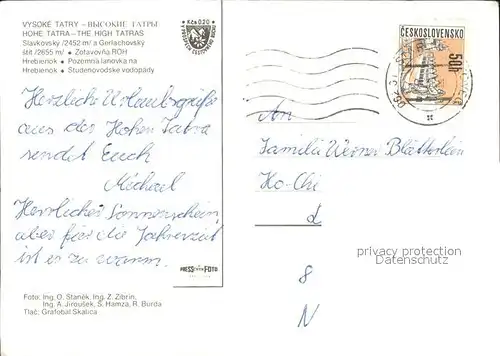 VYSOKÉ TATRY – ВЫСОКИЕ ТАТРЫ
HOHE TATRA – THE HIGH TATRAS
Slavkovský /2452 m/ a Gerlachovský
štít /2655 m/ • Zotavovňa ROH
Hrebienok • Pozemná lanovka na
Hrebienok • Studenovodské vodopády
Kčs 0,20
Herzliche Urlaubsgrüße
aus der Hohen Tatra
sendet Euch
Michael
Herrlicher Sonnenschein,
aber für die Jahreszeit
ist es zu warm.
PRESSFOTO
Foto: Ing. O. Staněk, Ing. Z. Zibrin,
Ing. A. Jiroušek, S. Hamza, R. Burda
Tlač: Grafobal Skalica
ČESKOSLOVENSKO
50h
An
Familie Werner Blätterlein
Ko-Chi
d
8
N
privacy protection
watermark